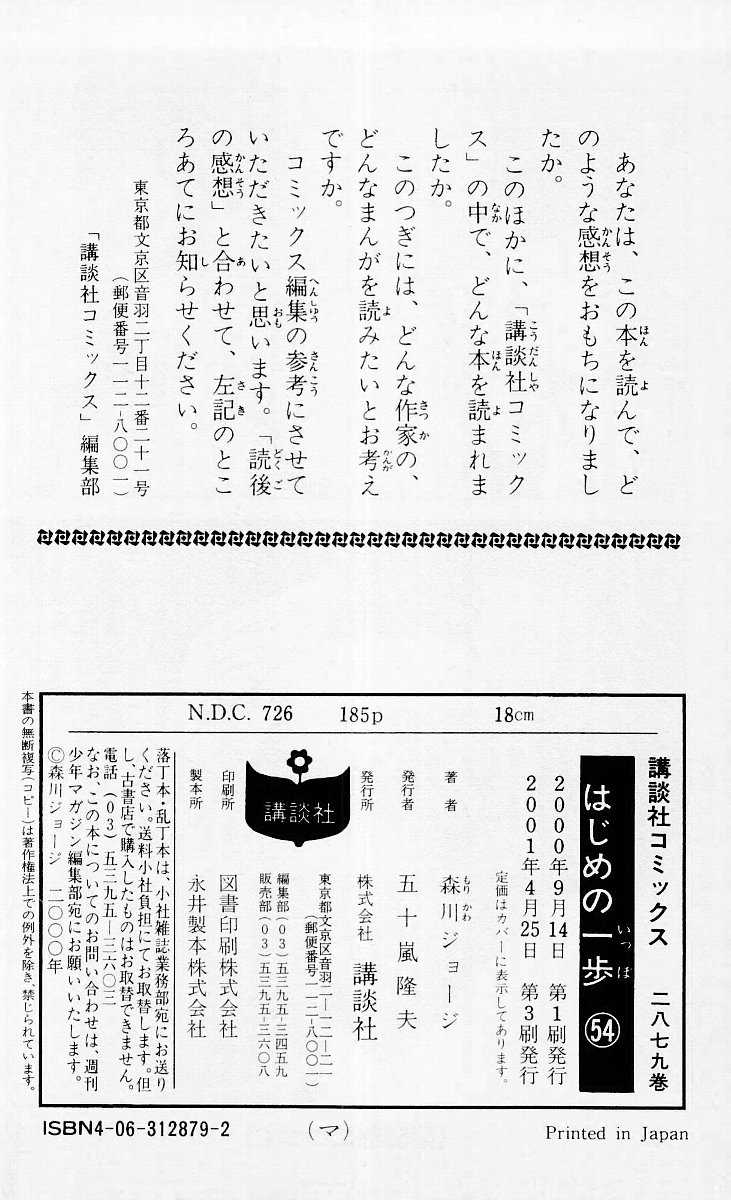 あなたは、この本を読んで、ど
のような感想をおもちになりまし
たか。
このほかに、「講談社コミック
ス」の中で、どんな本を読まれま
したか。
このつぎには、どんな作家の、
どんなまんがを読みたいとお考え
ですか。
コミックス編集の参考にさせて
いただきたいと思います。「読後
の感想」と合わせて、左記のとこ
ろあてにお知らせください。
東京都文京区音羽二丁目十二番二十一号
（郵便番号一一二-八〇〇一）
「講談社コミックス」編集部
N.D.C. 726 185p 18cm
講談社コミックス 二八七九巻
はじめの一歩 54
2000年9月14日 第1刷発行
2001年4月25日 第3刷発行
定価はカバーに表示してあります。
著者 森川ジョージ
発行者 五十嵐隆夫
発行所 株式会社 講談社
東京都文京区音羽二-一二-二一
（郵便番号一一二-八〇〇一）
編集部（０３）五三九五-三四五九
販売部（０３）五三九五-三六〇八
講談社
印刷所 図書印刷株式会社
製本所 永井製本株式会社
落丁本・乱丁本は、小社雑誌業務部宛にお送り
ください。送料小社負担にてお取替します。但
し、古書店で購入したものはお取替できません。
電話（０３）五三九五-三六〇三
なお、この本についてのお問い合わせは、週刊
少年マガジン編集部宛にお願いいたします。
©森川ジョージ 二〇〇〇年
本書の無断複写(コピー)は著作権法上での例外を除き、禁じられています。
ISBN4-06-312879-2 （マ） Printed in Japan